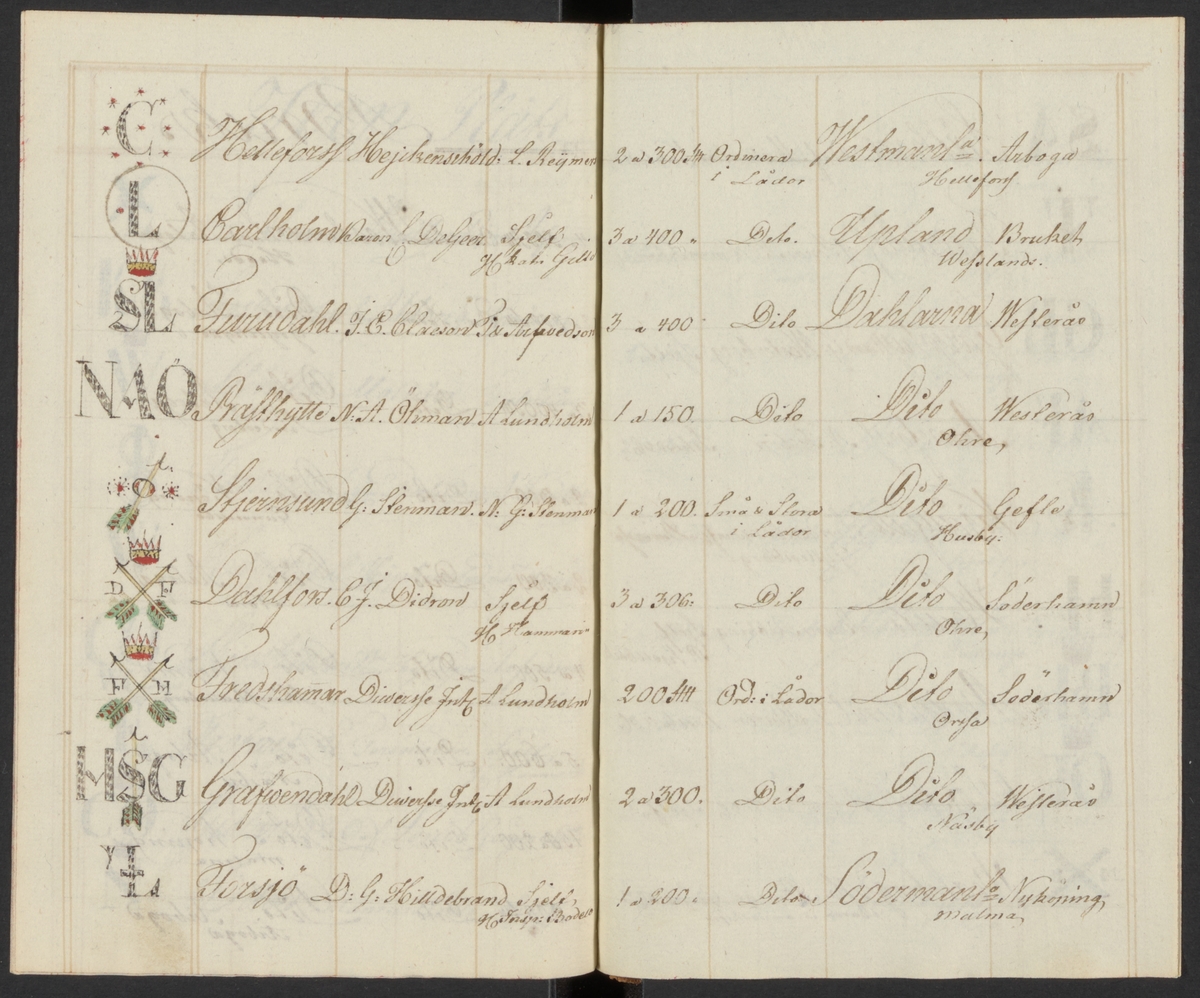 C Hellefors Hejckensköld: L. Reÿmer 2 a 300 Ordinera Westmanl.ª Arboga
i Lådor Hellefors
L Carlholm Baron C DeGeer Sjelf 3 a 400 " Dito. Upland Bruket
H Wesslands.
SL Furudahl. J. E. Claeson Arfwedson 3 a 400 Dito Dahlarna Westerås
NAÖ Prästhytte N: A. Öhman A Lundholm 1 a 150. Dito Dito Westerås
Ohre,
Stjernsund G: Stenman. N: G: Stenman 1 a 200. Små & Stora Dito Gefle
i Lådor Husby:
D F Dahlfors. C J. Didron Sjelf 3 a 306: Dito Dito Söderhamn
H Hammarin Ohre,
F H Fredshamar Diwersse Int: A Lundholm 200 Ord: i Lådor Dito Söderhamn
Orsa
HSG Grafwendahl Diwersse Int: A Lundholm 2 a 300. Dito Dito Westerås
Näsby
L Forsjö D: G: Hilldebrand Sjelf, 1 a 200: Dito Södermanl.ª Nyköping,
H Insp: malma,